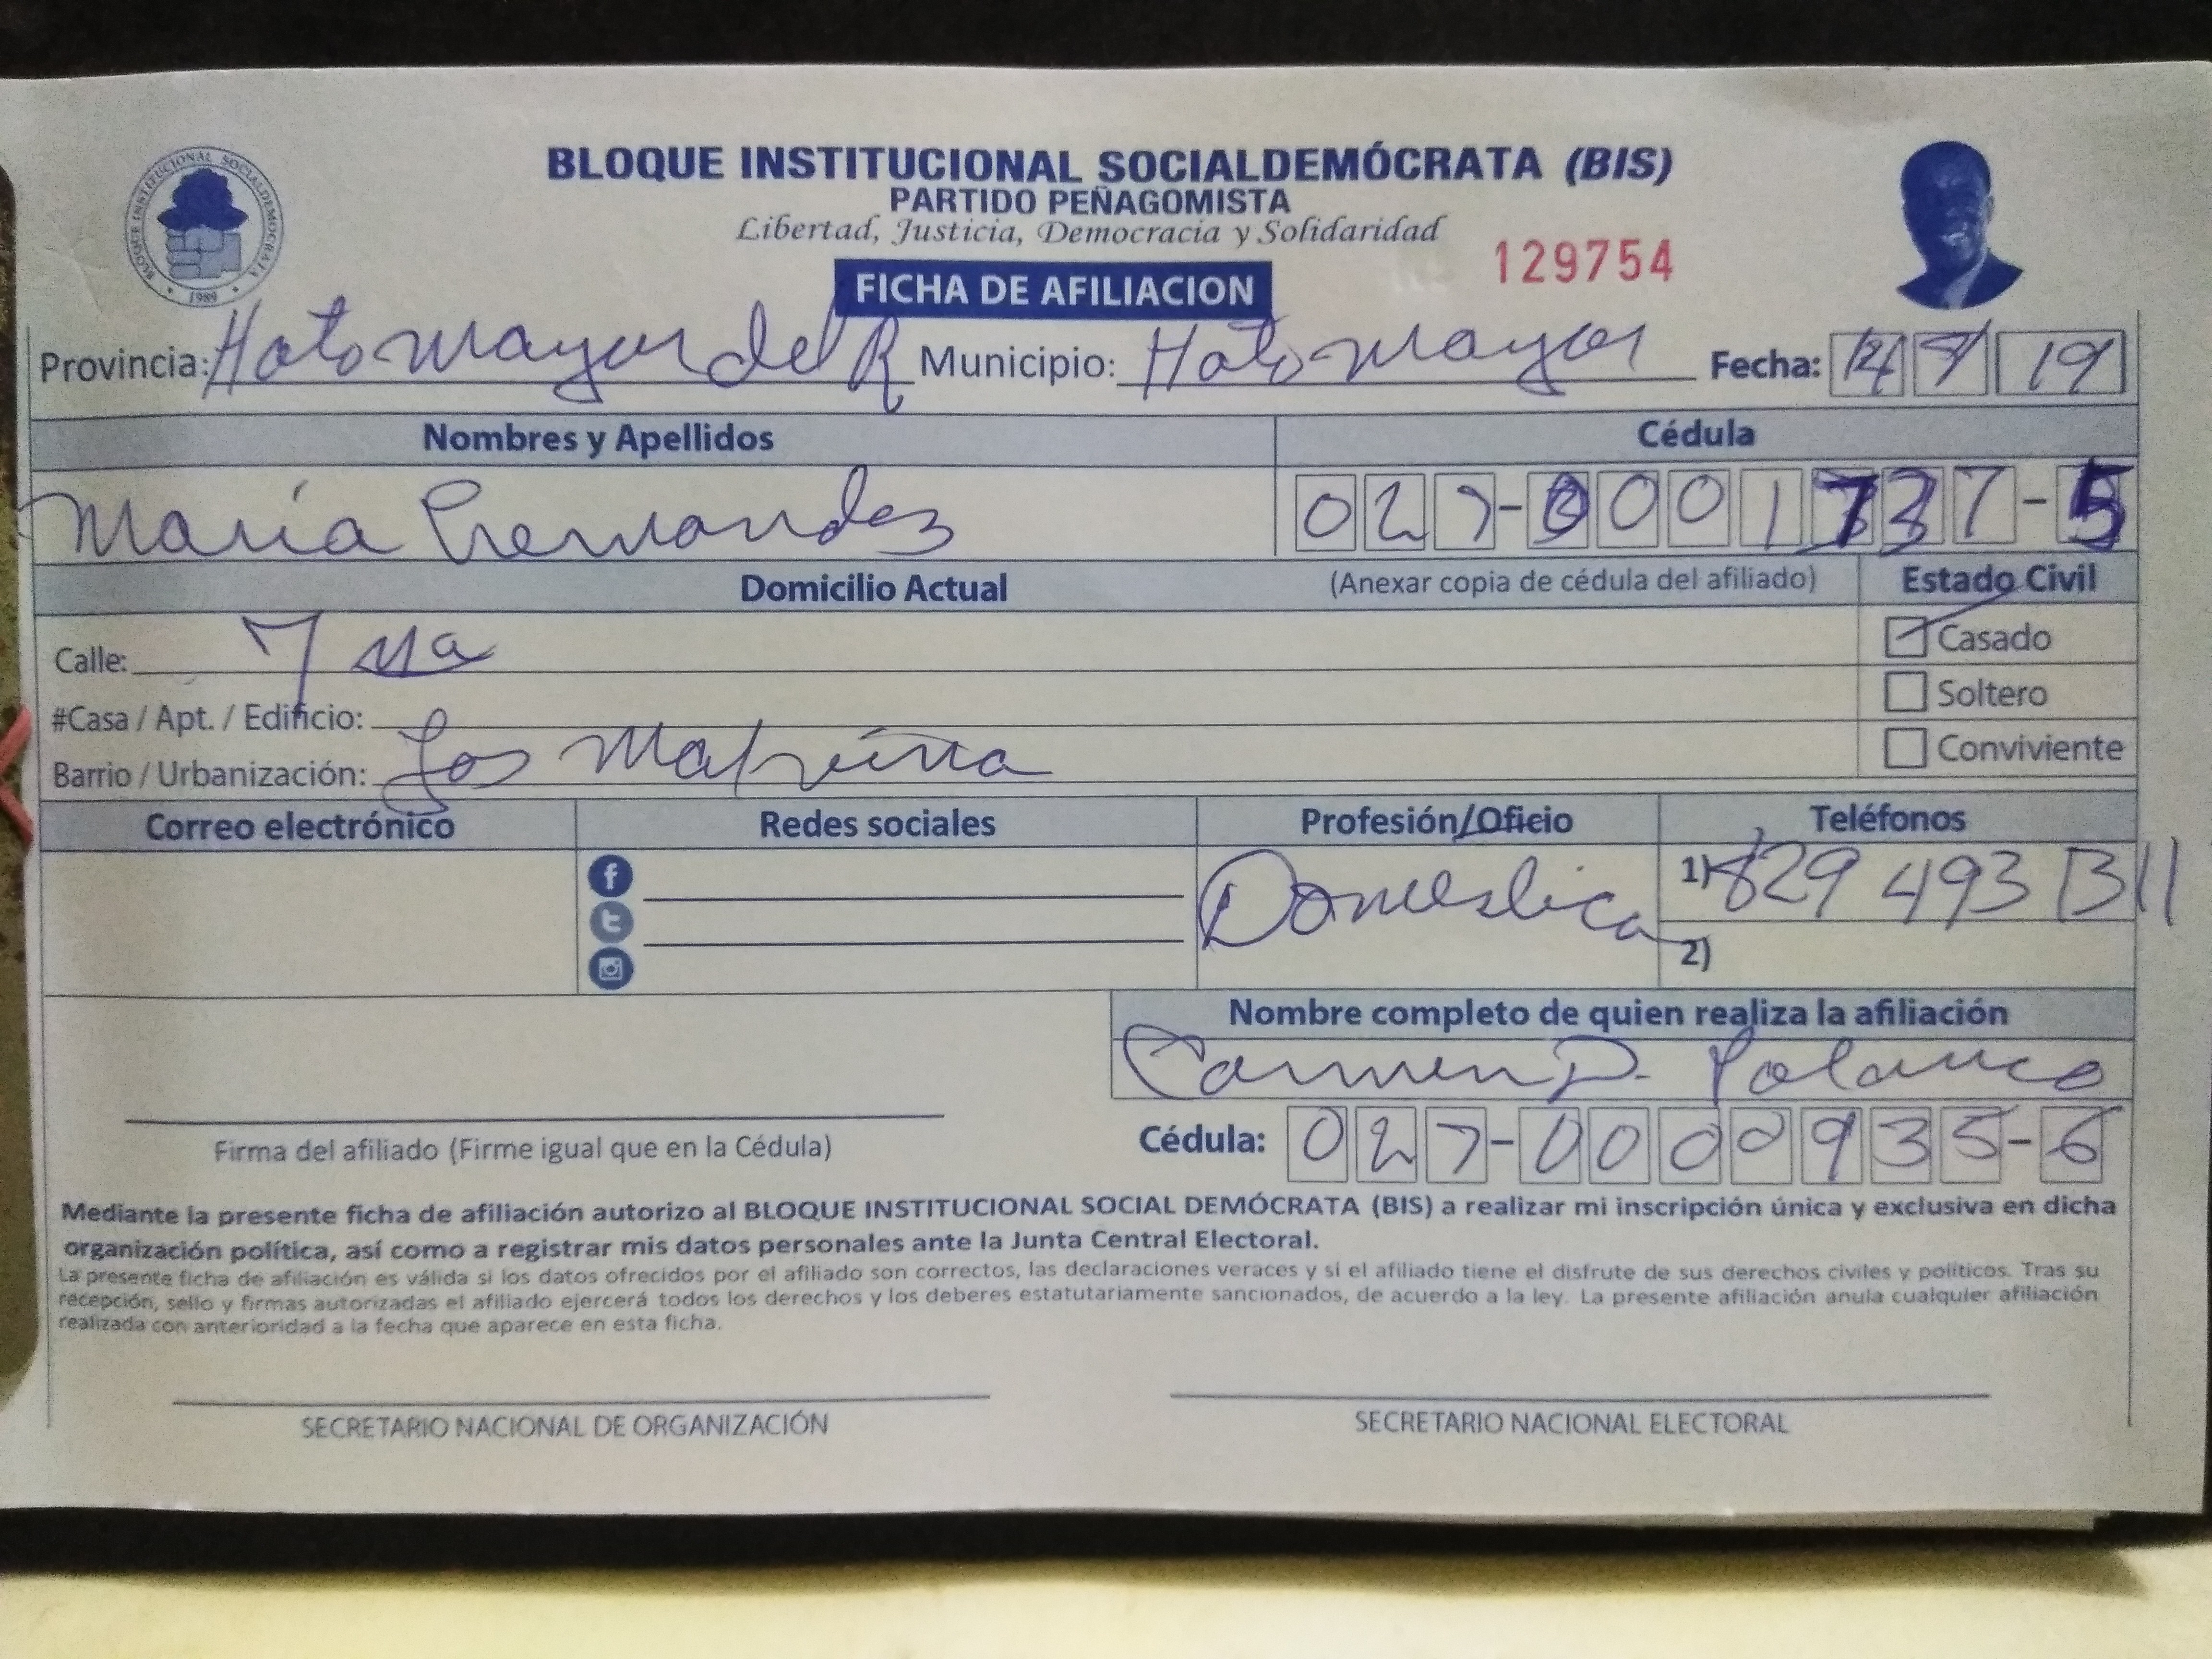 BLOQUE INSTITUCIONAL SOCIALDEMOCRATA
1989
BLOQUE INSTITUCIONAL SOCIALDEMÓCRATA (BIS)
PARTIDO PEÑAGOMISTA
Libertad, Justicia, Democracia y Solidaridad
129754
FICHA DE AFILIACION
Provincia: Hato mayor del R Municipio: Hato mayor Fecha: 19
Nombres y Apellidos Cédula
María Hernandez 027-0001737-5
Domicilio Actual (Anexar copia de cédula del afiliado) Estado Civil
Calle: 7 ma Casado
#Casa / Apt. / Edificio: Soltero
Barrio / Urbanización: Los Conviviente
Correo electrónico Redes sociales Profesión/Oficio Teléfonos
Domestica 1) 829 493 1311
2)
Nombre completo de quien realiza la afiliación
Carmen D. Polanco
Firma del afiliado (Firme igual que en la Cédula) Cédula: 027-0000935-6
Mediante la presente ficha de afiliación autorizo al BLOQUE INSTITUCIONAL SOCIAL DEMÓCRATA (BIS) a realizar mi inscripción única y exclusiva en dicha
organización política, así como a registrar mis datos personales ante la Junta Central Electoral.
La presente ficha de afiliación es válida si los datos ofrecidos por el afiliado son correctos, las declaraciones veraces y si el afiliado tiene el disfrute de sus derechos civiles y políticos. Tras su
recepción, sello y firmas autorizadas el afiliado ejercerá todos los derechos y los deberes estatutariamente sancionados, de acuerdo a la ley. La presente afiliación anula cualquier afiliación
realizada con anterioridad a la fecha que aparece en esta ficha.
SECRETARIO NACIONAL DE ORGANIZACIÓN SECRETARIO NACIONAL ELECTORAL